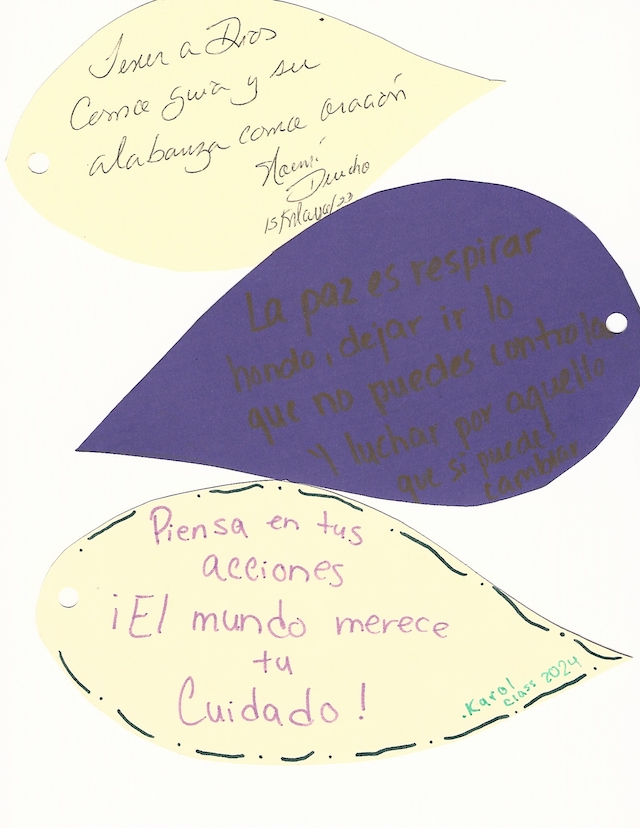 Tener a Dios
Como guia y su
alabanza como oración
Noemí
La paz es respirar
hondo, dejar ir lo
que no puedes controlar
Y luchar por aquello
que si puedes
cambiar
Piensa en tus
acciones
¡El mundo merece
tu
Cuidado!
.Karol
class 2024